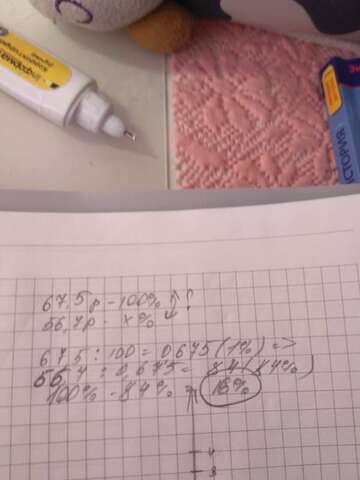 ИСТОРИЯ
67,5р - 100%
56,7р - x%
67,5 : 100 = 0,675 (1%) =>
56,7 : 0,675 = 84 (84%)
100% - 84% = 16%
4
3